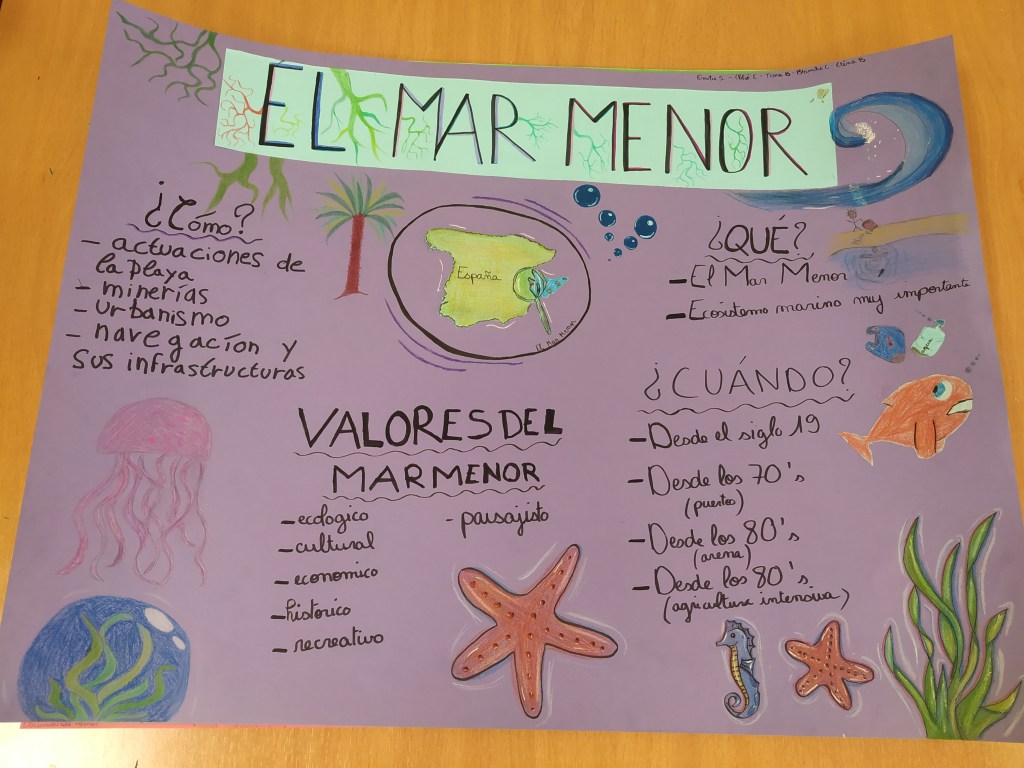 ÉL MAR MENOR
¿Cómo?
- actuaciones de
la playa
- minerías
- urbanismo
- navegacíon y
sus infrastructuras
España
El Mar Menor
¿QUÉ?
- El Mar Menor
- Ecósistemo marino muy importante
VALORES DEL
MAR MENOR
- ecologico
- cultural
- economico
- historico
- recreativo
- paisajisto
¿CUÁNDO?
- Desde el siglo 19
- Desde los 70's
(puerto)
- Desde los 80's
(arena)
- Desde los 80's
(agricultura intensiva)